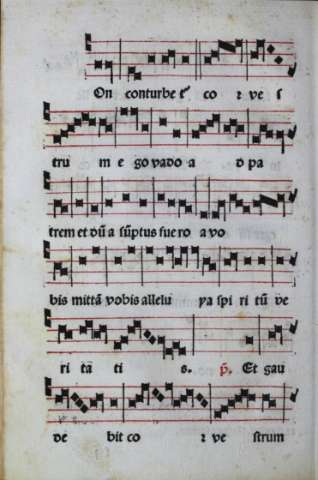 On conturbet᷒ co r ve s
tru m e go vado a d pa
trem et dū a sūptus fuero a vo
bis mittā vobis allelu ya spi ri tū ve
ri ta ti s. ꝟ. Et gau
de bit co r ve strum